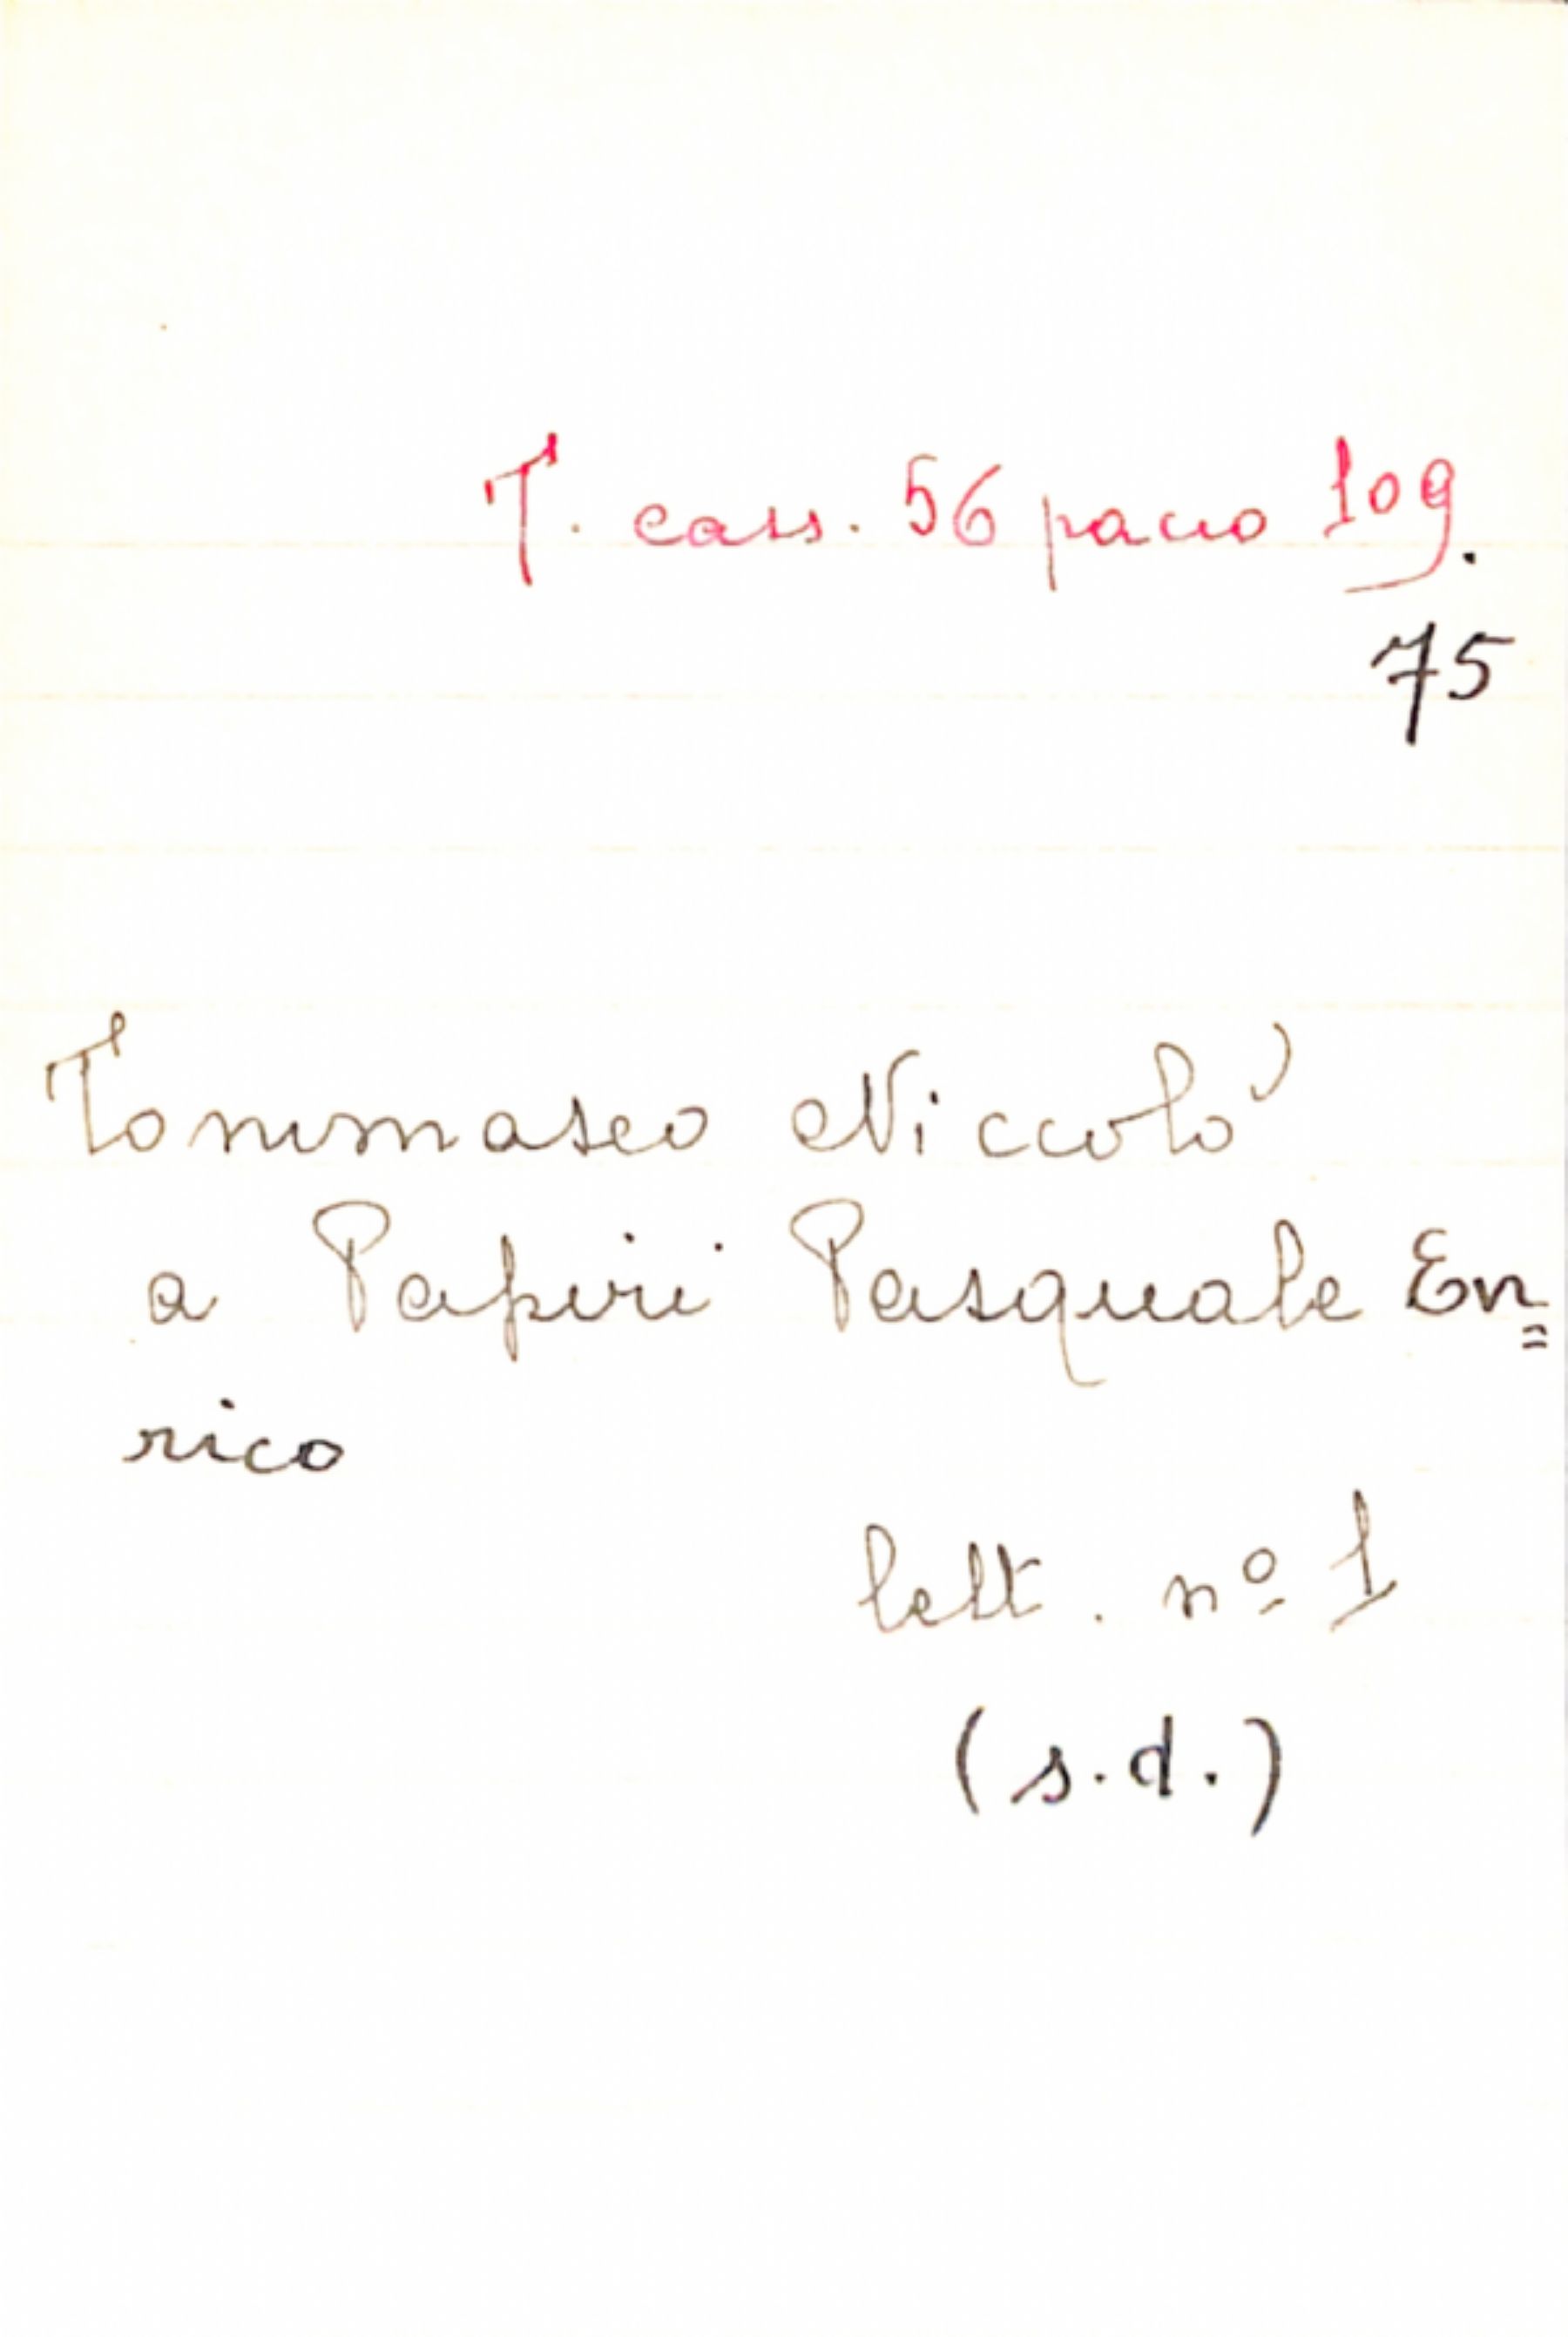 T. cass. 56 pacco 109.
75
Tommaseo Niccolò
a Papiri Pasquale En=
rico
lett. nº 1
(s.d.)